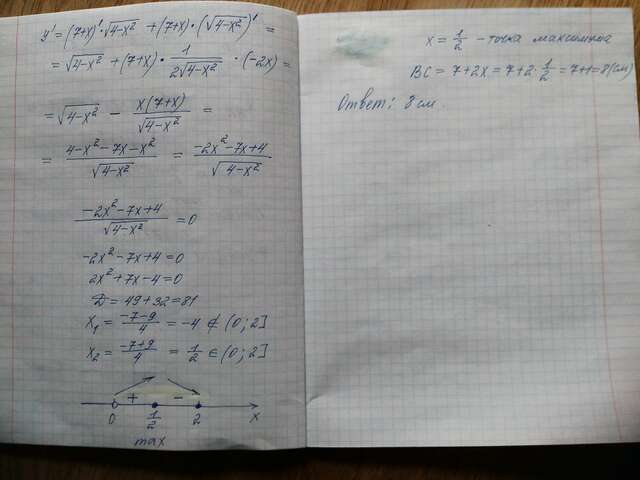 y' = (7+x)'·√(4-x²) + (7+x)·(√(4-x²))' =
= √(4-x²) + (7+x)·1/(2√(4-x²))·(-2x) =
= √(4-x²) - x(7+x)/√(4-x²) =
= (4-x²-7x-x²)/√(4-x²) = (-2x²-7x+4)/√(4-x²)
(-2x²-7x+4)/√(4-x²) = 0
-2x²-7x+4=0
2x²+7x-4=0
D = 49+32=81
x₁ = (-7-9)/4 = -4 ∉ (0;2]
x₂ = (-7+9)/4 = 1/2 ∈ (0;2]
+ -
0 1/2 2 x
max
x = 1/2 - точка максимума
BC = 7+2x = 7+2·1/2 = 7+1=8(см)
Ответ: 8 см